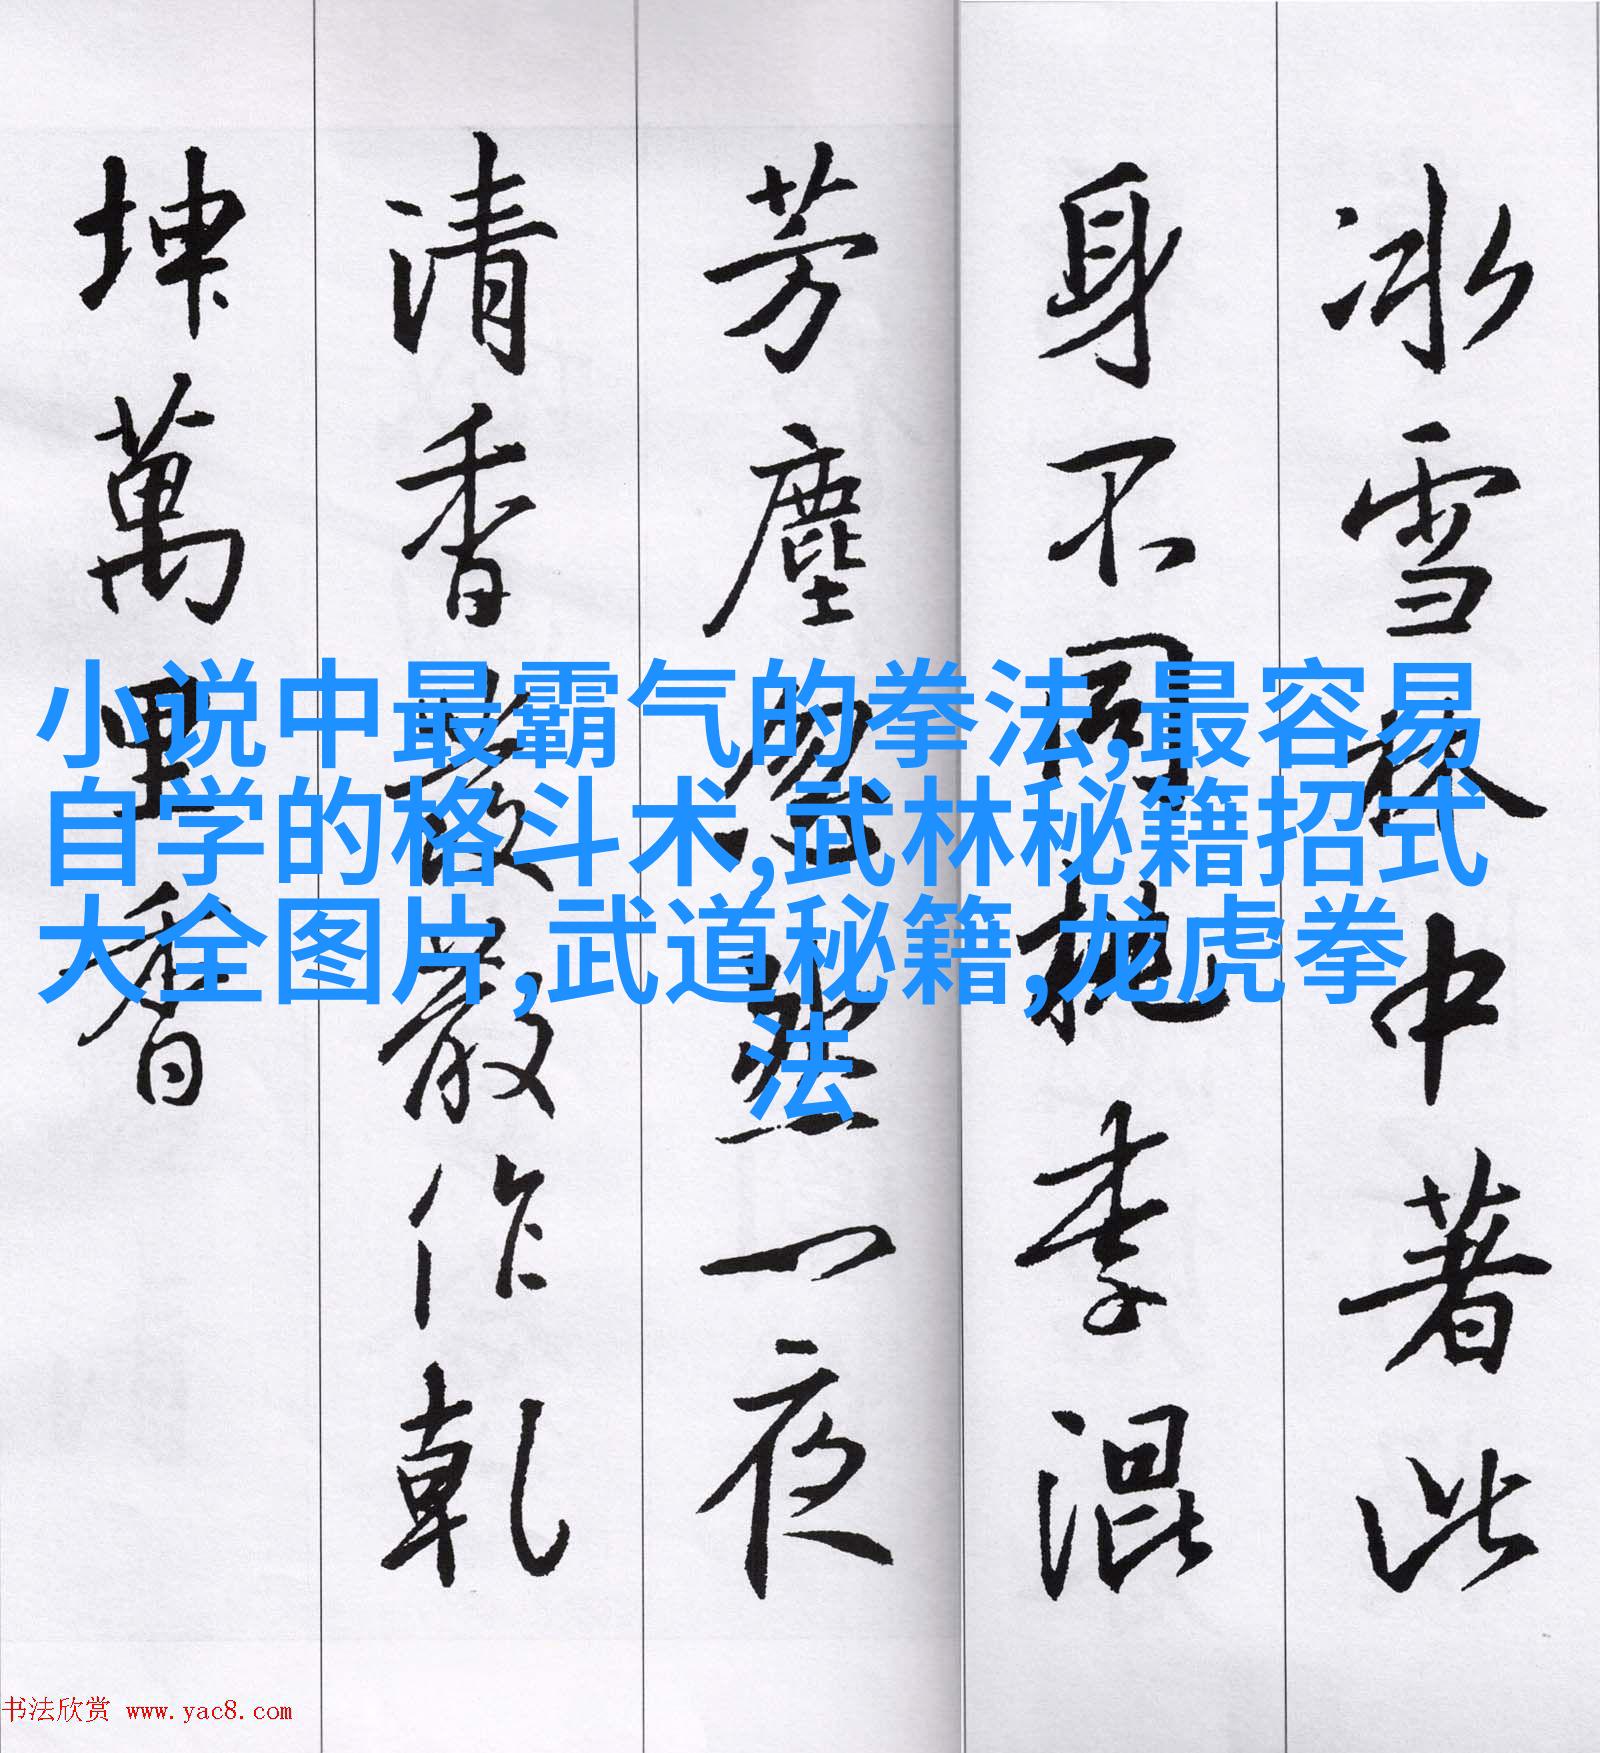 冰雪林中著此
身不同桃李混
芳塵忽然一夜
清香發散作乾
坤萬里香
小说中最霸气的拳法,最容易
自学的格斗术,武林秘籍招式
大全图片,武道秘籍,龙虎拳
法
书法欣赏 www.yac8.com